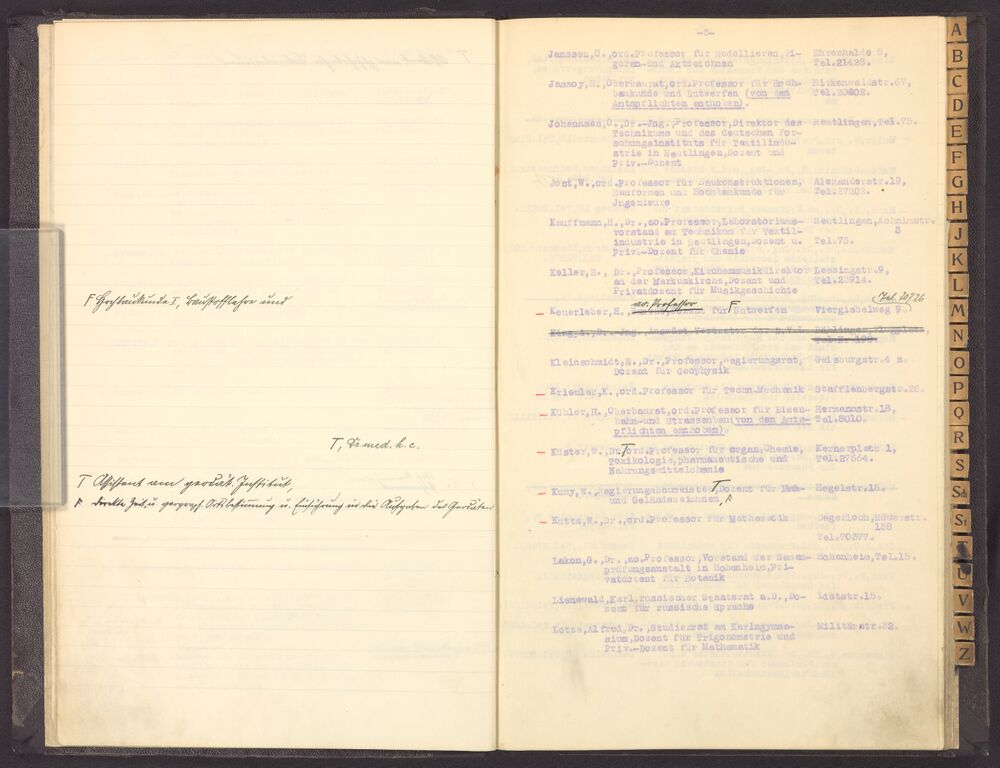 F Hochbaukunde I, Baustofflehre und
T, Dr med. h. c.
T Assistent am geodät. Institut,
F direkte Zeit u. geograph Ortsbestimmung u. Einführung in die Aufgaben der Geodäsie
-8-
Janssen,U.,ord.Professor für Modellieren,Fi- Ehrenhalde 5,
guren-und Aktzeichnen Tel.21428.
Jassoy,H.,Oberbaurat,ord.Professor für Hoch- Birkenwaldstr.67,
baukunde und Entwerfen (von den Tel.20402.
Amtspflichten enthoben).
Johannsen,O.,Dr.-Jng.,Professor,Direktor des Reutlingen,Tel.75.
Technikums und des deutschen For-
schungsinstituts für Textilindu-
strie in Reutlingen,Dozent und
Priv.-Dozent
Jost,W.,ord.Professor für Baukonstruktionen, Alexanderstr.19,
Bauformen und Hochbaukunde für Tel.27202.
Jngenieure
Kauffmann,H.,Dr.,ao.Professor,Laboratoriums- Reutlingen,Achalmstr.
vorstand am Technikum für Textil- 3
industrie in Reutlingen,Dozent u. Tel.75.
Priv.-Dozent für Chemie
Keller,H., Dr.,Professor,Kirchenmusikdirektor Lessingstr.9,
an der Markuskirche,Dozent und Tel.23914.
Privatdozent für Musikgeschichte
ao. Professor F Tel. 20726
Keuerleber,H., für Entwerfen Viergiebelweg 9.
Dr.-Jng.
Kleinschmidt,E.,Dr.,Professor,Regierungsrat, Gaisburgstr.4 a.
Dozent für Geophysik
Kriemler,K.,ord.Professor für Techn.Mechanik Stafflenbergstr.26.
Kübler,H.,Oberbaurat,ord.Professor für Eisen- Hermannstr.18,
bahn-und Strassenbau(von den Amts- Tel.8010.
pflichten enthoben).
Küster,W.,Dr.T ord.Professor für organ.Chemie, Kernerplatz 1,
Toxikologie,pharmazeutische und Tel.27664.
Nahrungsmittelchemie
Kuny,W.,Regierungsbaumeister T,Dozent für Hegelstr.15.
und Geländezeichnen, F
Kutta,W.,Dr.,ord.Professor für Mathematik Degerloch,Römerstr.
138
Tel.70377.
Lakon,G.,Dr.,ao.Professor,Vorstand der Samen- Hohenheim,Tel.15.
prüfungsanstalt in Hohenheim,Pri-
vatdozent für Botanik
Lienewald,Karl,russischer Staatsrat a.D.,Do- Lietstr.15.
zent für russische Sprache
Lotze,Alfred,Dr.,Studienrat am Karlsgymna- Militärstr.32.
sium,Dozent für Trigonometrie und
Priv.-Dozent für Mathematik
A
B
C
D
E
F
G
H
J
K
L
M
N
O
P
Q
R
S
Sch
St
T
U
V
W
Z